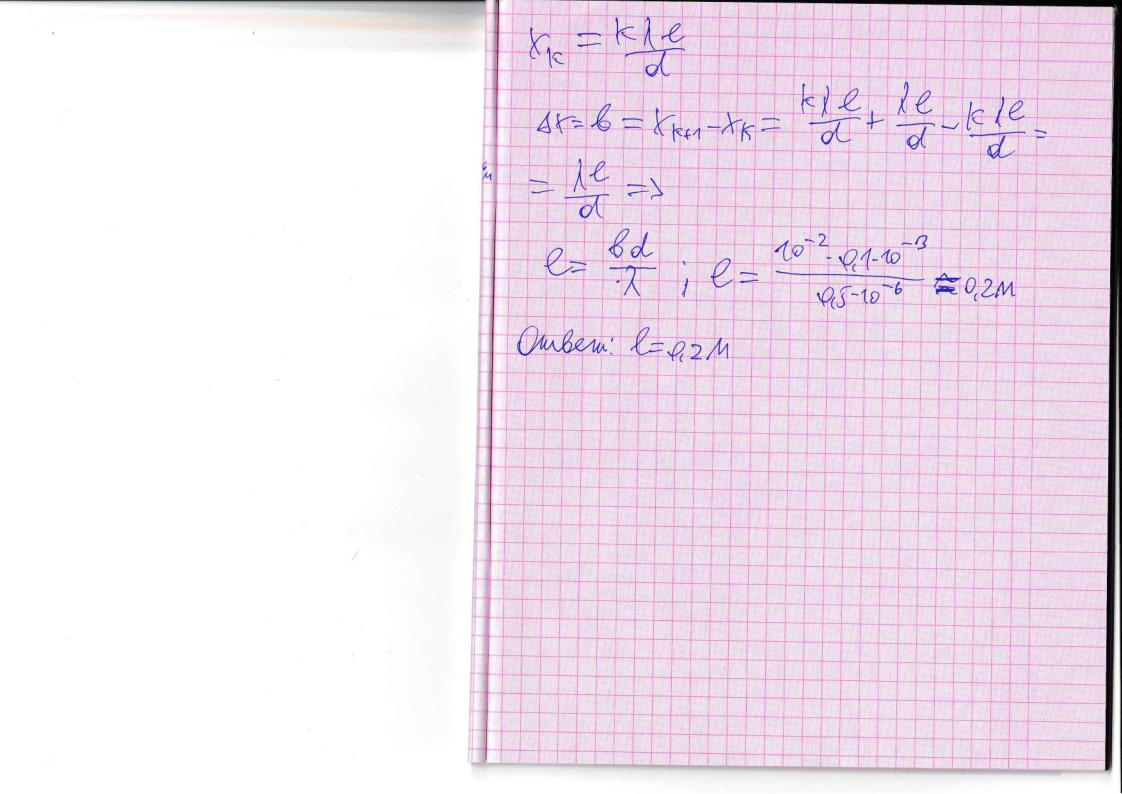 x_k = kλl/d
Δx = b = x_{k+1} - x_k = kλl/d + λl/d - kλl/d =
= λl/d =>
l = bd/λ ; l = 10^{-2} · 0,1 · 10^{-3} / 0,5 · 10^{-6} = 0,2 м
Ответ: l = 0,2 м